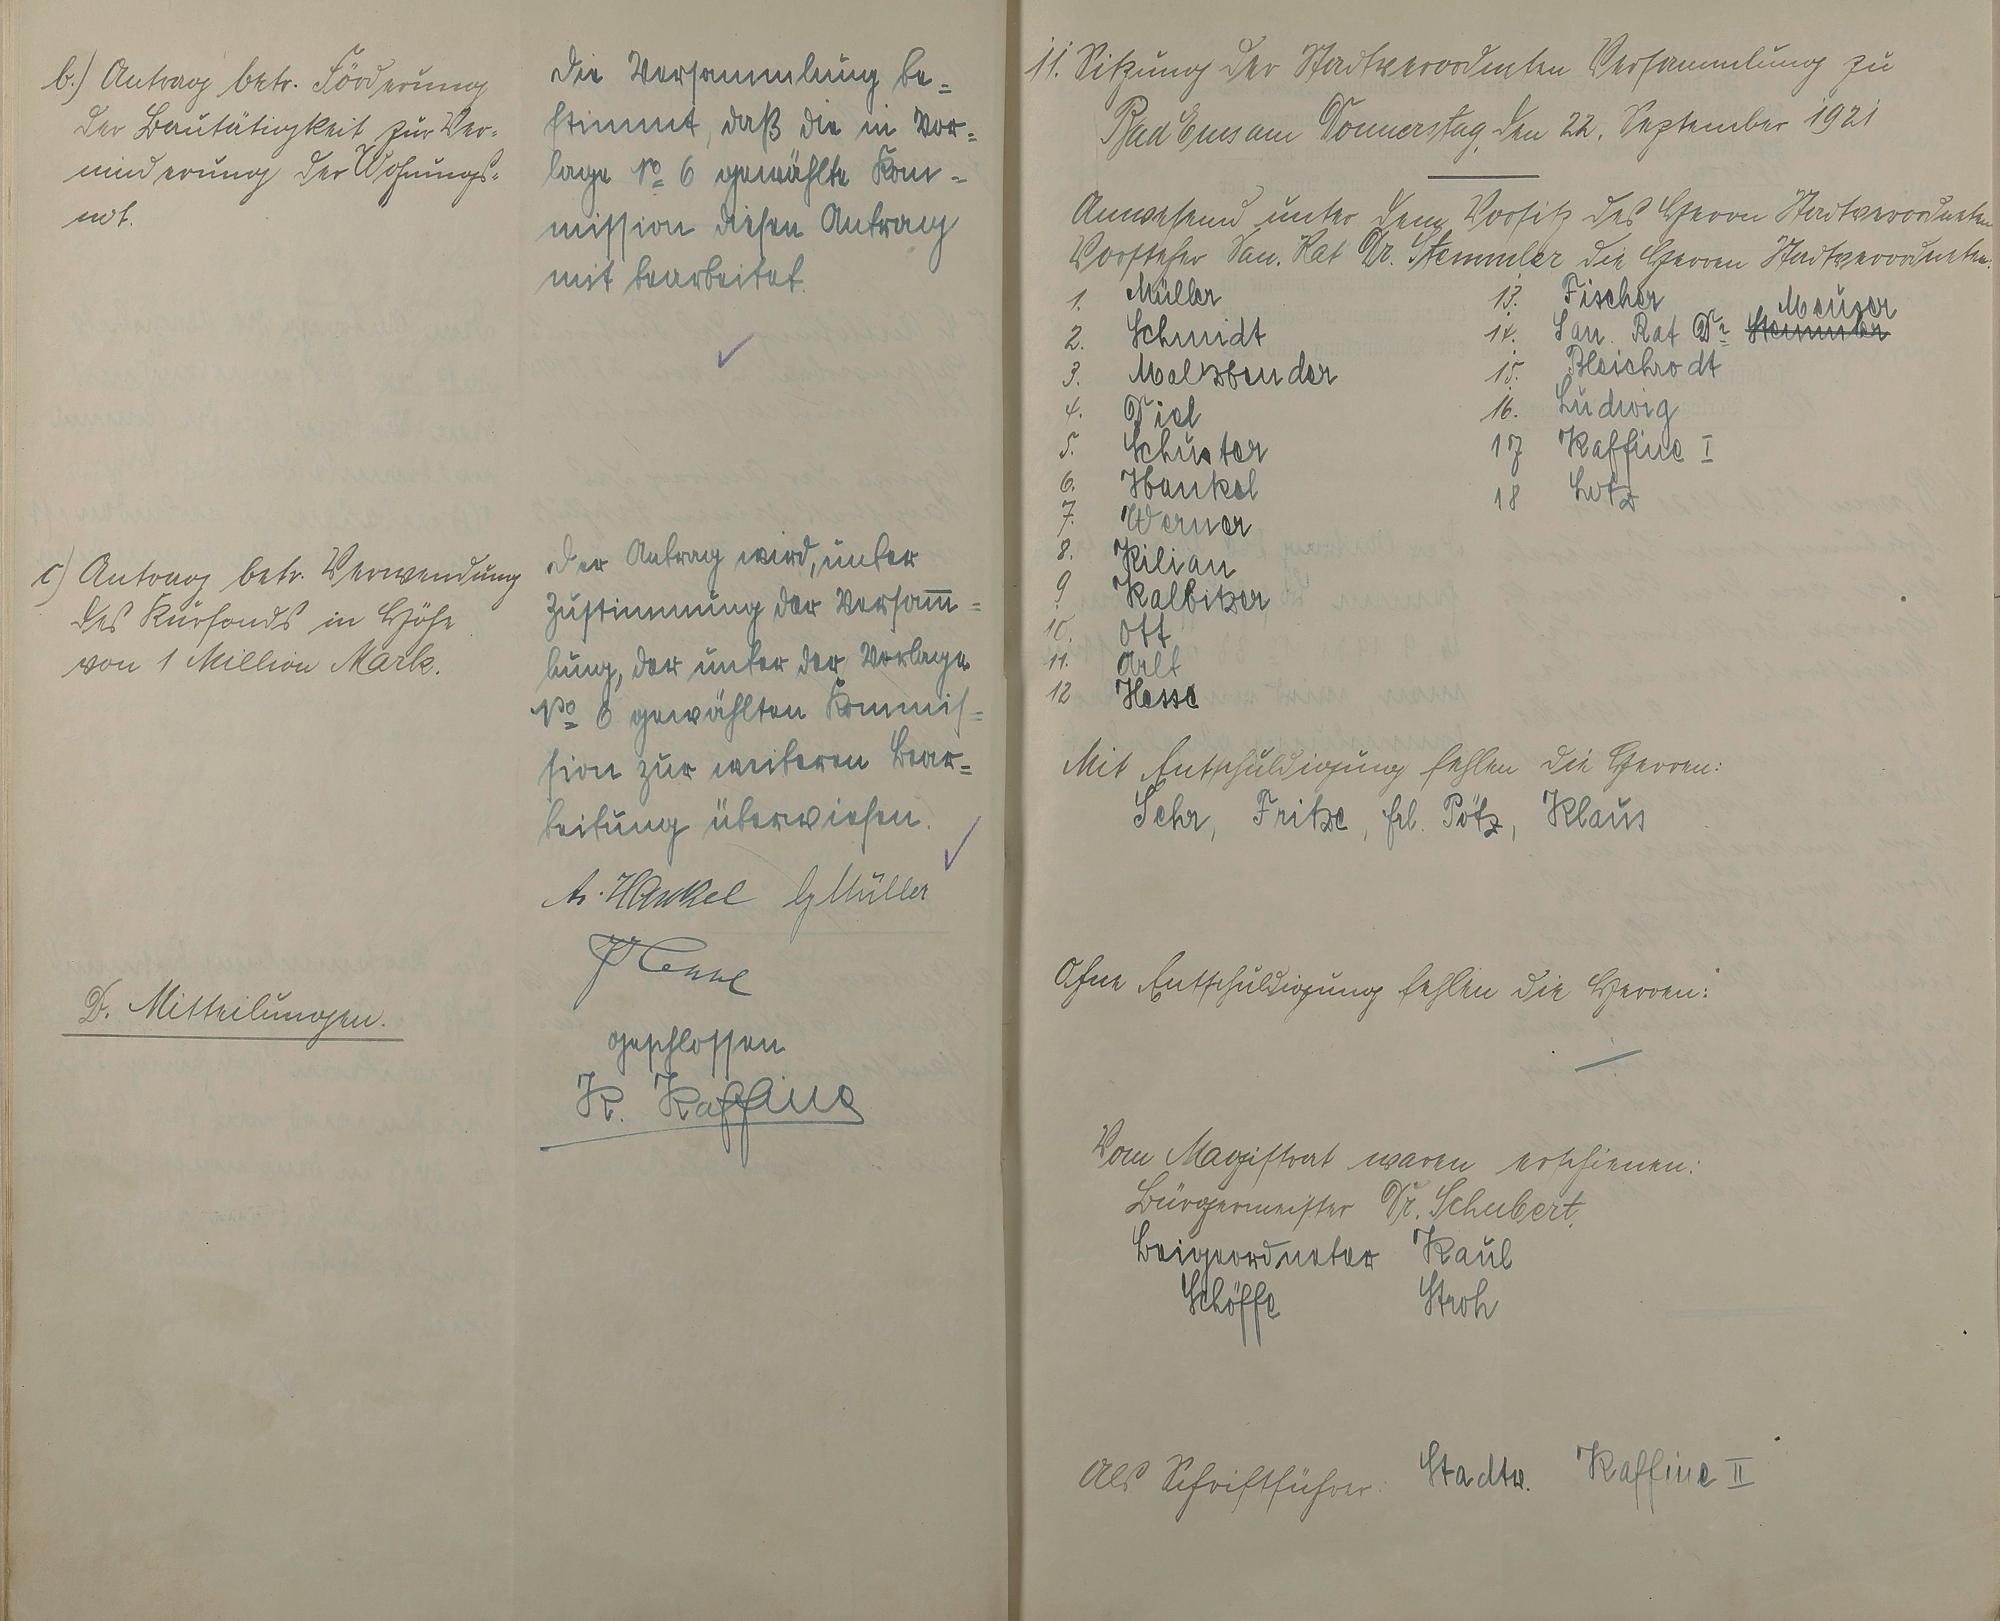 b.) Antrag betr. Förderung
der Bautätigkeit zur Ver-
minderung der Wohnungs-
not.
Die Versammlung be=
stimmt, daß die in Vor=
lage No 6 gewählte Kom=
mission diesen Antrag
mit bearbeitet.
c) Antrag betr. Verwendung
des Kurfonds in Höhe
von 1 Million Mark.
Der Antrag wird, unter
Zustimmung der Versam̅=
lung, der unter der Vorlage
No 6 gewählten Kommis=
sion zur weiteren Bear=
beitung überwiesen.
A. Hankel G Müller
D. Mitteilungen.
geschlossen
K. Kaffine
11. Sitzung der Stadtverordneten Versammlung zu
Bad Ems am Donnerstag, den 22. September 1921
Anwesend unter dem Vorsitz des Herrn Stadtverordneten
Vorsteher San. Rat Dr. Stemmler die Herren Stadtverordneten:
1. Müller
2. Schmidt
3. Malzbender
4. Diel
5. Schuster
6. Hankel
7. Werner
8. Kilian
9 Kalbitzer
10. Ott
11. Arlt
12 Hesse
13. Fischer
14. San. Rat Dr Stemmler Meuser
15. Bleichrodt
16. Ludwig
17 Kaffine I
18 Lotz
Mit Entschuldigung fehlen die Herren:
Sehr, Fritze, frl. Pötz, Klaus
Ohne Entschuldigung fehlen die Herren:
Vom Magistrat waren erschienen:
Bürgermeister Dr. Schubert,
Beigeordneter Kaul
Schöffe Stroh
Als Schriftführer: Stadtv. Kaffine II